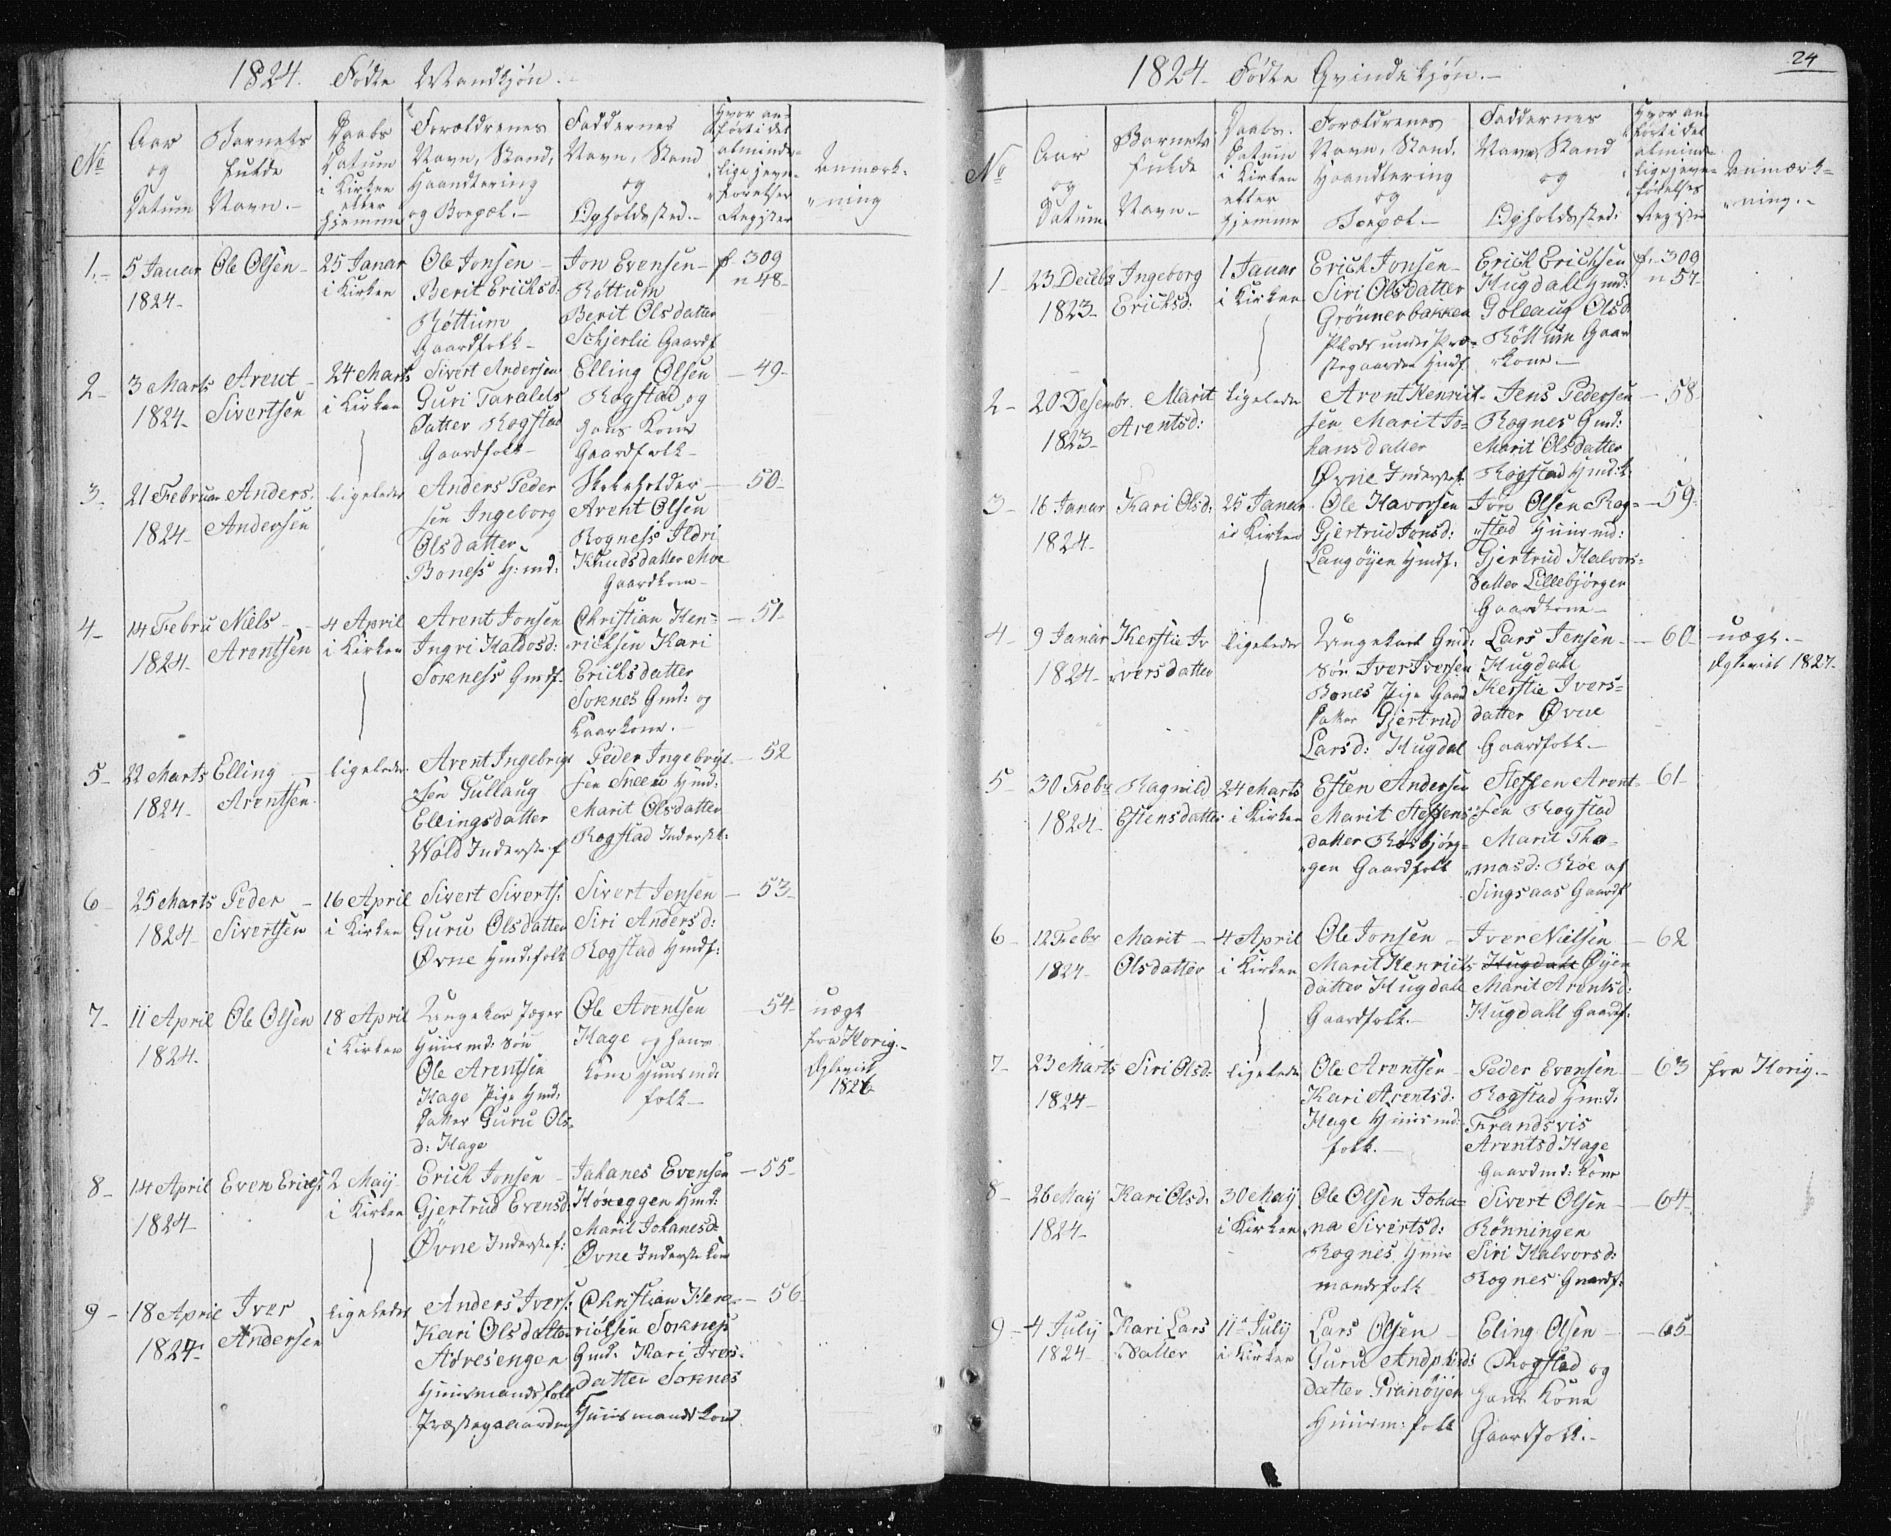 1824. Fødte Mandkjøn.
No
Aar og Datum
Barnets fulde Navn.
Daabs Datum i Kirken eller hjemme
Forældrenes Navn, Stand, Haandtering og Boepæl.
Faddernes Navn, Stand og Opholdssted.
Hvor anført i det almindelige Jevnførelses Register
Anmærkning
1. 5 Januar 1824 Ole Olsen
25 Januar i Kirken
Ole Jonsen
Berit Ericksd:
Rottum
Gaardfolk
Jon Evensen
Rottum
Berit Olsdatter
Schjerlie Gaardf
f 309
n 48
2 3 Marts 1824 Arent Sivertsen
24 Marts i Kirken
Sivert Andersen
Guri Taralds
datter Rogstad
Gaardfolk
Elling Olsen
Rogstad og
hans Kone
Gaardfolk
49
3. 21 Februar 1824 Anders Andersen
ligeledes
Anders Peder
sen Ingeborg
Olsdatter
Boness H:md:
Skoleholder
Arent Olsen
Rogness Ildri
Knudsdatter Moe
Gaardkone
50
4 14 Febru 1824 Niels Arentsen
4 April i Kirken
Arent Jonsen
Ingri Haldosd:
Sokness Gmdf
Christian Hen
ricksen Kari
Ericksdatter
Soknes Gmd: og
Kaarkone.
51
5 22 Marts 1824 Elling Arentsen
ligeledes
Arent Ingebrigt
sen Gullaug
Ellingsdatter
Wold Inderstf
Peder Ingebrigt
sen Sneen Hmd:
Marit Olsdatter
Rogstad Inderstk:
52
6 25 Marts 1824 Peder Sivertsen
16 April i Kirken
Sivert Siverts:
Guru Olsdatter
Øvne Hmdsfolk
Sivert Jensen
Siri Andersd:
Rogstad Hmdf:
53
7 11 April 1824 Ole Olsen
18 April i Kirken
Ungekar Jæger
Huusmd: Søn
Ole Arentsen
Hage Pige Hmd:
Datter Guru Ols
d: Hage
Ole Arentsen
Hage og hans
Kone Huusmd:
folk
54
uægt
fra Horig.
1826
8 14 April 1824 Even Ericks:
2 May i Kirken
Erich Jonsen
Gjertrud Evensd:
Øvne Inderstf:
Johanes Evensen
Høneggen Hmd:
Marit Johanesd:
Øvne Inderste Kone
55
9 18 April 1824 Iver Andersen
ligeledes
Anders Ivers:
Kari Olsdatter
Advesengen
Huusmandsfolk
Præstegaarden
Christian Hen
ricksen Soknes
Gmd: Kari Ivers
datter Soknes
Huusmands Kone
56
24
1824. Fødte Qvindekjøn.
No
Aar og Datum
Barnets fulde Navn
Daabs Datum i Kirken eller hjemme
Forældrenes Navn, Stand, Haandtering og Boepæl
Faddernes Navn, Stand og Opholdssted:
Hvor anført i det almindelige Jevnførelses Register
Anmærkning.
1 23 Decebr 1823 Ingeborg Ericksd:
1 Januar i Kirken
Erick Jonsen
Siri Olsdatter
Grønnerbakken
Plads under Præ
stegaarden Hmdf
Erick Ericksen
Hugdal Hmd:
Goleaug Olsd
Rottum Gaar
kone
f 309
n 57
2 20 Desembr. 1823 Marit Arentsd:
ligeledes
Arent Henrick
sen, Marit Jo
hansdatter
Øvne Inderstf.
Jens Pedersen
Rognes Gmd:
Marit Olsdatter
Rogstad Hmd:k
58
3 16 Januar 1824 Kari Olsd:
25 Januar i Kirken
Ole Havorsen
Gjertrud Jonsd:
Langøyen Hmdf.
Jon Olsen Rog
stad Huusmd:
Gjertrud Halvors
datter Lillebjørgen
Gaardkone
59
4 9 Januar 1824 Kerstie Iversdatter
ligeledes
Ungekarl Gmd:
Søn Iver Iversen
Bones Pige Gaard
Datter Gjertrud
Larsd: Hugdal
Lars Jensen
Hugdal
Kerstie Ivers
datter Øvne
Gaardfolk
60
uægt.
1827
5 30 Febr 1824 Ragnild Estensdatter
24 Marts i Kirken
Esten Andersen
Marit Steffens
datter Rosbjørg
gen Gaardfolk
Steffen Arent
sen Rogstad
Marit Tho
masd: Røe af
Singsaas Gaardf
61
6 12 Febr 1824 Marit Olsdatter
4 April i Kirken
Ole Jonsen
Marit Henricks
datter Hugdal
Gaardfolk.
Iver Nielsen
Hugdahl Øyen
Marit Arentsd:
Hugdahl Gaardf:
62
7 23 Marts 1824 Siri Olsd:
ligeledes
Ole Arentsen
Kari Arentsd:
Hage Huusmd:
folk.
Peder Evensen
Rogstad Hmd:
Frandsvis
Arentsd Hage
Gaardmd: Kone
63
fra Horig.
8 26 May 1824 Kari Olsd:
30 May i Kirken
Ole Olsen Joha
na Sivertsd:
Rognes Huus
mandsfolk
Sivert Olsen
Rønningen
Siri Halvorsd:
Rognes Gaardf:
64
9 4 July 1824 Kari Larsdatter
11 July i Kirken
Lars Olsen
Guru
datter Granøyen
Huusm: folk
Eling Olsen
Rogstad og
hans Kone
Gaardfolk.
65